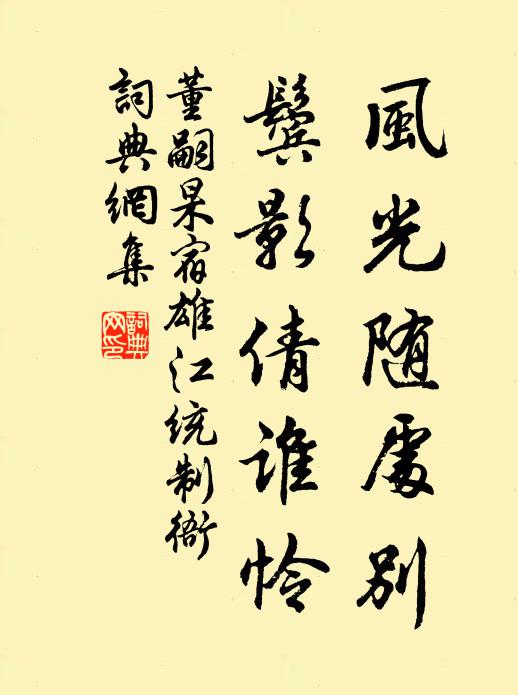 風光随處别
鬢影倩誰怜
董嗣杲宿雄江統制衙
詞典網集
詞典
网印